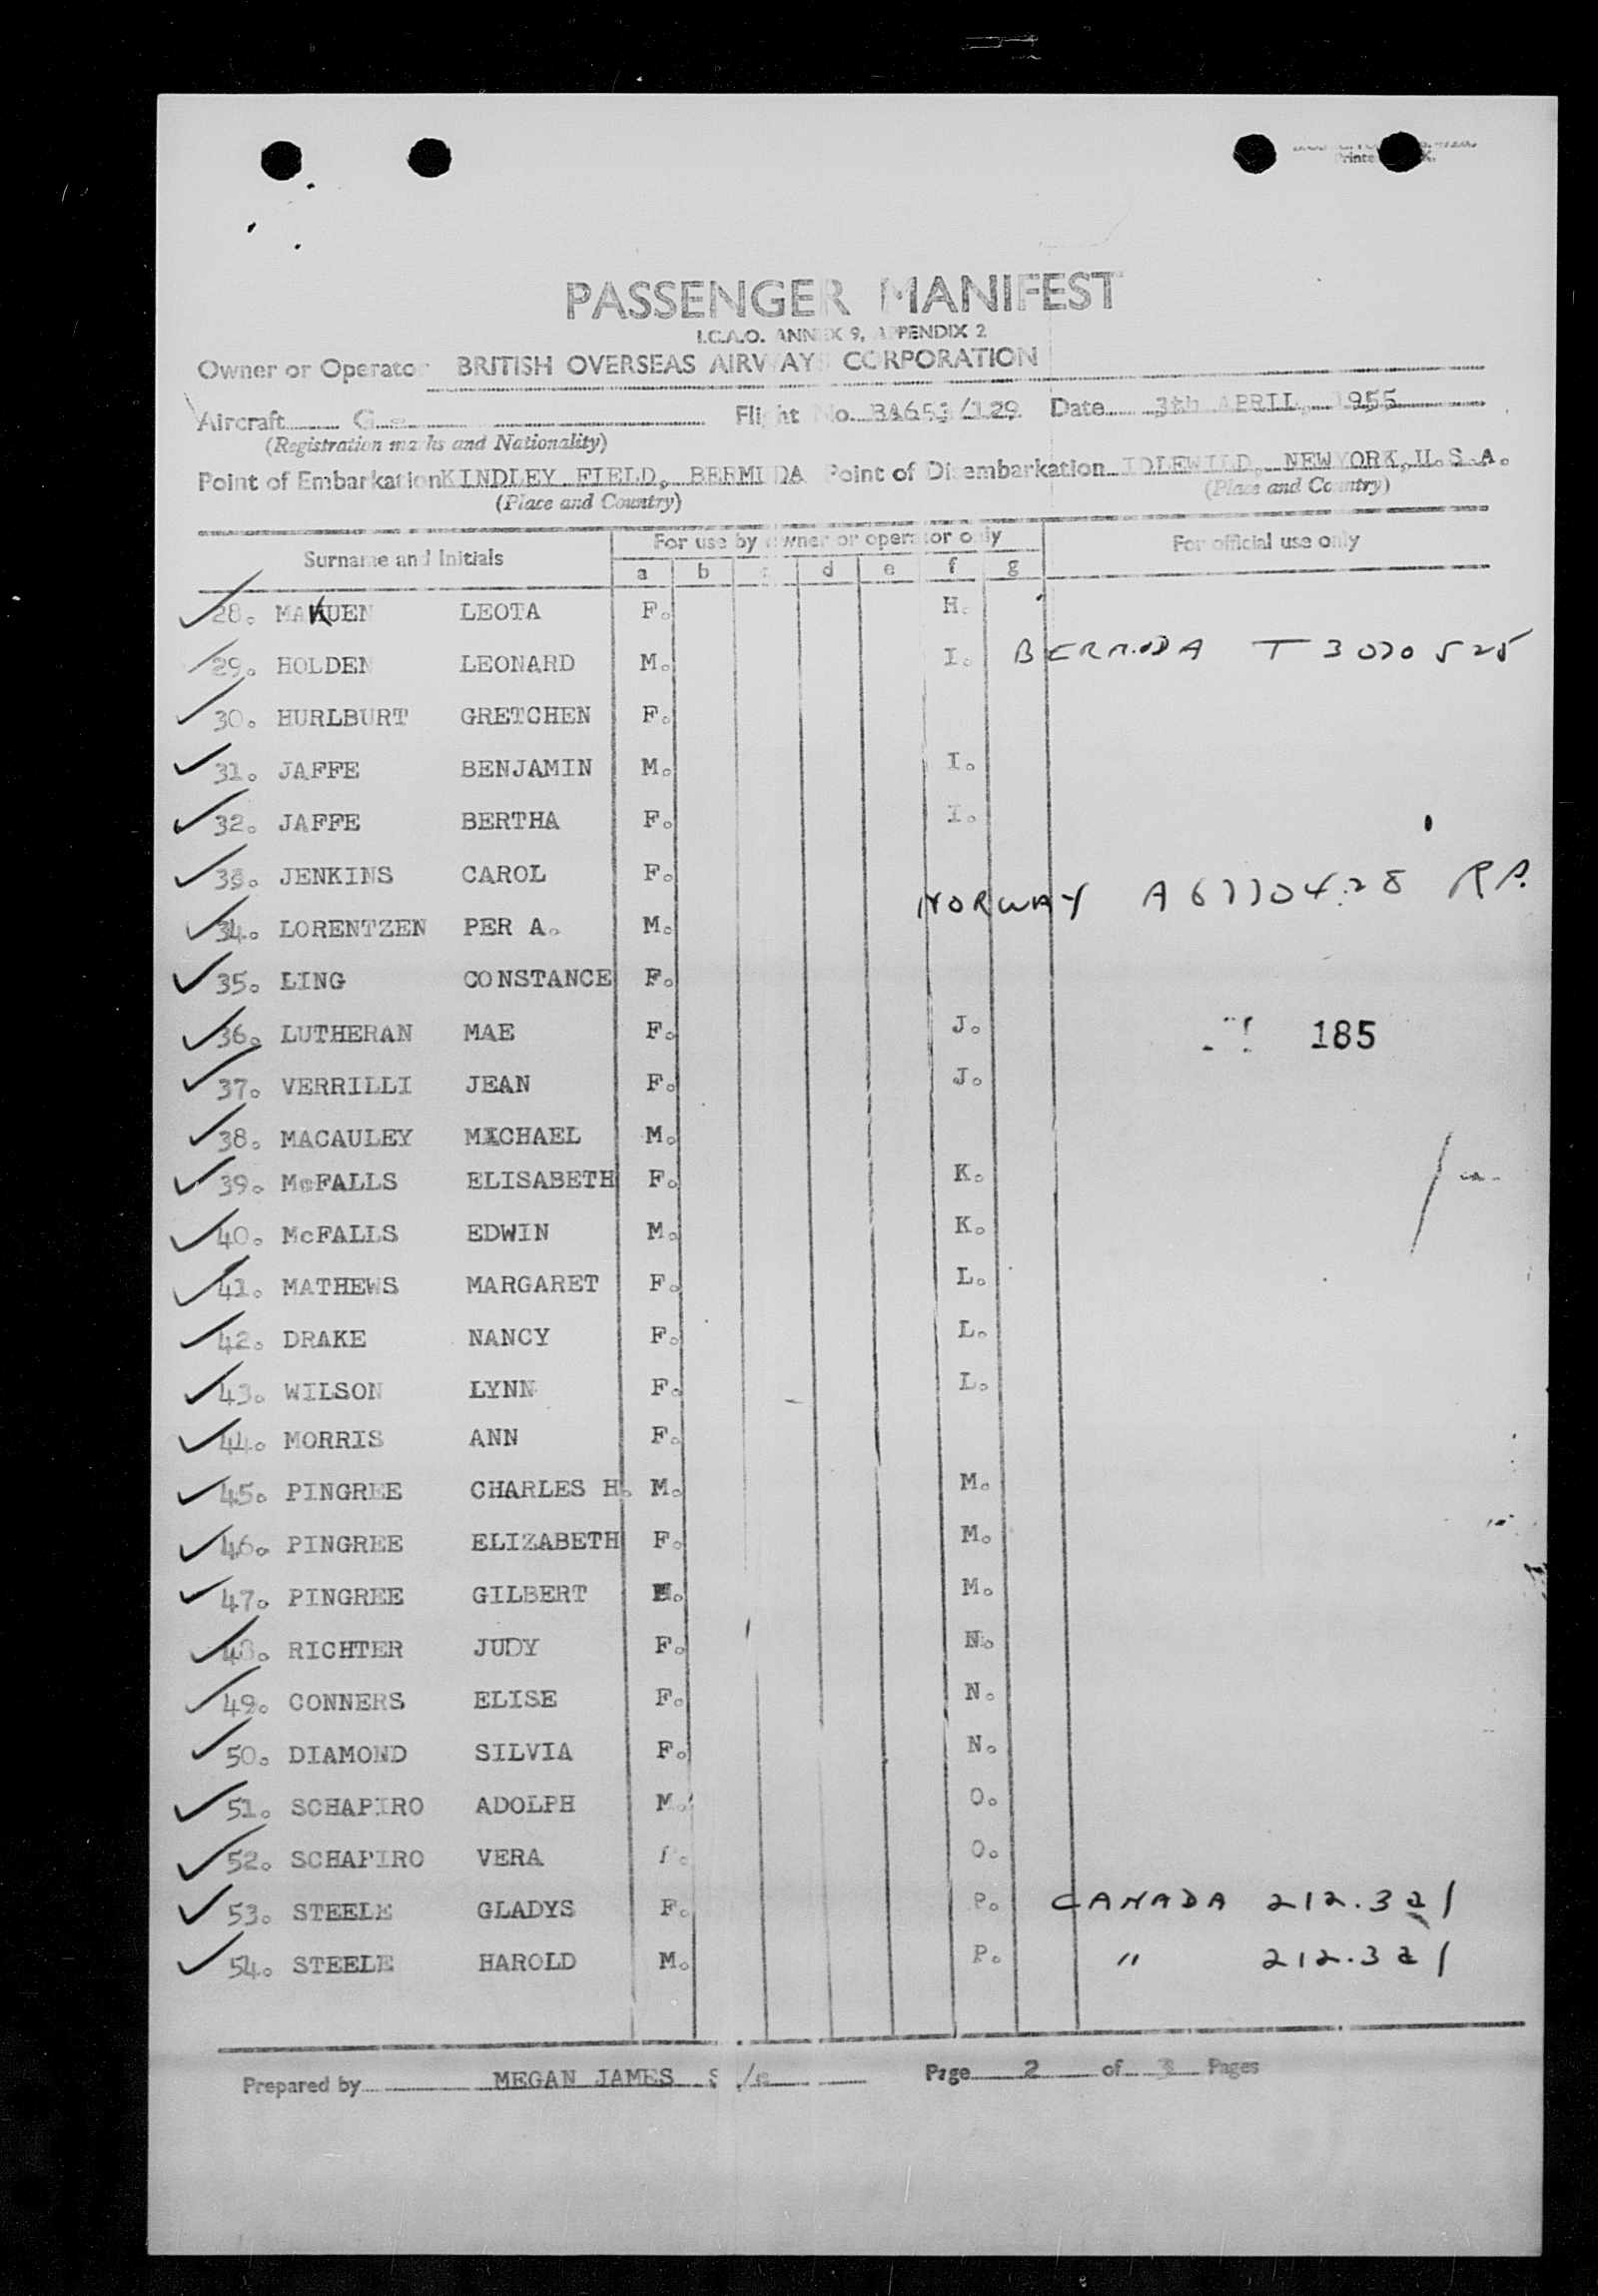 PASSENGER MANIFEST
I.C.A.O. ANNEX 9, APPENDIX 2
Owner or Operator BRITISH OVERSEAS AIRWAYS CORPORATION
Aircraft G Flight No. BA653/129 Date 3th APRIL, 1955
(Registration marks and Nationality)
Point of Embarkation KINDLEY FIELD, BERMUDA Point of Disembarkation IDLEWILD, NEWYORK, U.S.A.
(Place and Country) (Place and Country)
Surname and Initials For use by owner or operator only For official use only
a b c d e f g
28. MAKUEN LEOTA F. H.
29. HOLDEN LEONARD M. I. BERMUDA T 3070525
30. HURLBURT GRETCHEN F.
31. JAFFE BENJAMIN M. I.
32. JAFFE BERTHA F. I.
33. JENKINS CAROL F.
34. LORENTZEN PER A. M. NORWAY
35. LING CONSTANCE F.
36. LUTHERAN MAE F. J. 185
37. VERRILLI JEAN F. J.
38. MACAULEY MICHAEL M.
39. McFALLS ELISABETH F. K.
40. McFALLS EDWIN M. K.
41. MATHEWS MARGARET F. L.
42. DRAKE NANCY F. L.
43. WILSON LYNN F. L.
44. MORRIS ANN F.
45. PINGREE CHARLES H. M. M.
46. PINGREE ELIZABETH F. M.
47. PINGREE GILBERT M. M.
48. RICHTER JUDY F. N.
49. CONNERS ELISE F. N.
50. DIAMOND SILVIA F. N.
51. SCHAPIRO ADOLPH M. O.
52. SCHAPIRO VERA F. O.
53. STEELE GLADYS F. P. CANADA 212.321
54. STEELE HAROLD M. P. " 212.321
Prepared by MEGAN JAMES Page 2 of 3 Pages